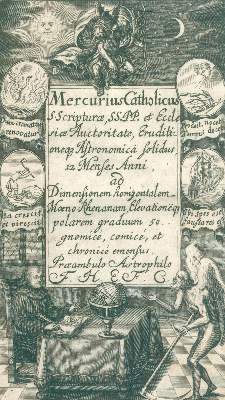 Mercurius Catholicus
SScripturæ, SS.PP. et Eccle
siæ Auctoritate, Eruditi
oneq; Astronomicâ solidus
12 Menses Anni
ad
Dimensionem horizontalem
Moeno Rhenanam, Elevationéq;
polarem graduum 50.
gnomicè, comicè, et
chronicè emensus
Præambulo Astrophilo
F. H. E. F. C
renovatur
nocet
crescit
et virescit